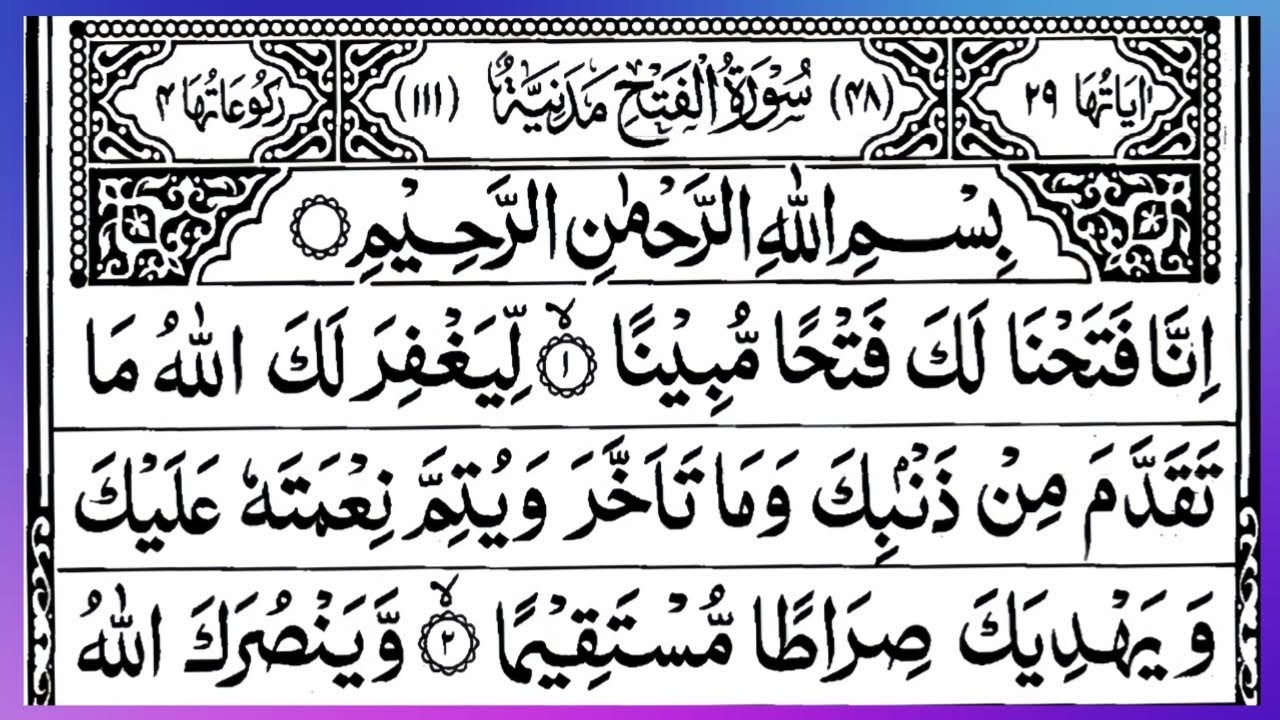 اٰيَاتُهَا ٢٩ (٤٨) سُوْرَةُ الْفَتْحِ مَدَنِيَّةٌ (١١١) رُكُوْعَاتُهَا ٤
بِسْمِ اللّٰهِ الرَّحْمٰنِ الرَّحِيْمِ
اِنَّا فَتَحْنَا لَكَ فَتْحًا مُّبِيْنًا ۙ﴿١﴾ لِّيَغْفِرَ لَكَ اللّٰهُ مَا
تَقَدَّمَ مِنْ ذَنْۢبِكَ وَمَا تَاَخَّرَ وَيُتِمَّ نِعْمَتَهٗ عَلَيْكَ
وَيَهْدِيَكَ صِرَاطًا مُّسْتَقِيْمًا ۙ﴿٢﴾ وَّيَنْصُرَكَ اللّٰهُ